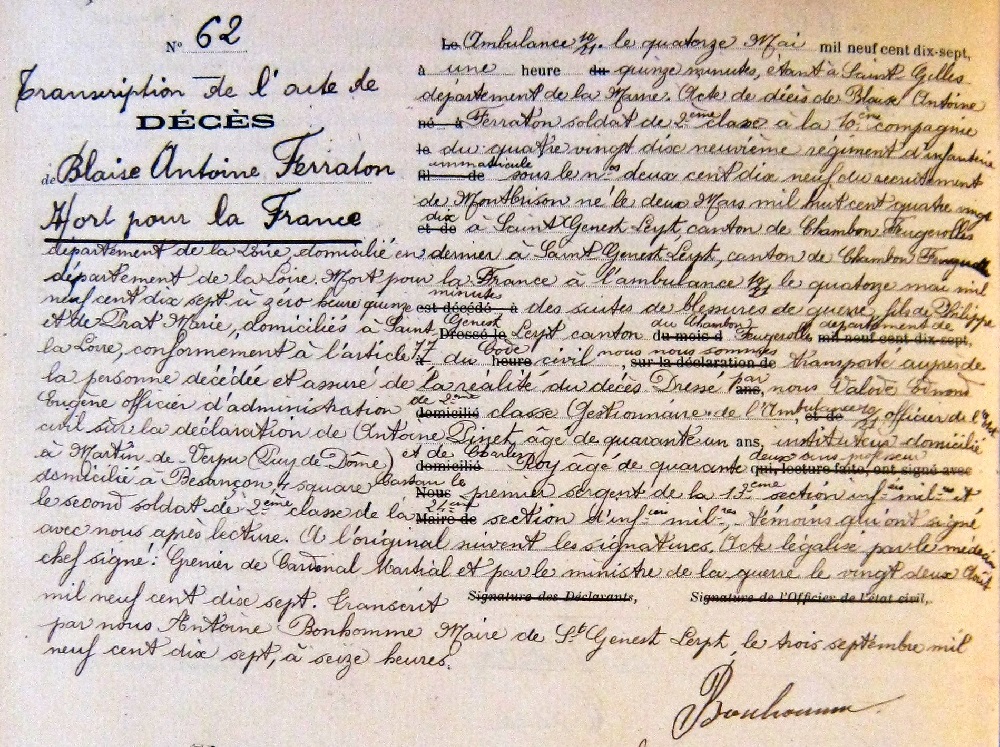 N° 62
Transcription de l'acte de
DÉCÈS
de Blaise Antoine Ferraton
Mort pour la France
Le Ambulance le quatorze Mai mil neuf cent dix-sept,
à une heure du quinze minutes, étant à Saint Gilles
département de la Marne. Acte de décès de Blaise Antoine
né à Ferraton soldat de 2ème classe à la 10e compagnie
le du quatre vingt dix neuvième régiment d'infanterie
immatricule
fil de sous le nos deux cent dix neuf du recrutement
de Montbrison né le deux Mars mil huit cent quatre vingt
dix
et de à Saint Genest Lerpt, canton de Chambon Feugerolles
département de la Loire, domicilié en dernier à Saint Genest Lerpt, canton de Chambon Feugerolles
département de la Loire. Mort pour la France à l'ambulance le quatorze mai mil
minutes
neuf cent dix sept à zéro heure quinze est décédé, à des suites de blessures de guerre, fils de Philippe
Genest du Chambon département de
et de Prat Marie, domiciliés à Saint Dressé le Lerpt canton du mois d Feugerolles mil neuf cent dix-sept,
Code nous nous sommes
la Loire, conformément à l'article 77 à du heure civil, sur la déclaration de transporté auprès de
par
la personne décédée et assuré de la réalité du décès Dressé ans, nous Édmond
de 2ème
Eugène officier d'administration domicilié classe Gestionnaire de l'Ambulance, et de officier de l'état
civil sur la déclaration de Antoine Pinet, âgé de quarante un ans, instituteur domicilié
et de Charles deux ans professeur
à Martin de (Puy de Dôme) domicilié Roy âgé de quarante qui, lecture faite, ont signé avec
domicilié à Besançon 4 square le Nous premier sergent de la 13ème section infers milres et
24ème
le second soldat de 2ème classe de la Maire de section d'infers milres, témoins qui ont signé
avec nous après lecture. A l'original suivent les signatures. Acte légalisé par le médecin
chef signé: Grenier de Cardenal Martial et par le ministre de la guerre le vingt deux Août
mil neuf cent dix sept. Transcrit Signature des Déclarants, Signature de l'Officier de l'état civil,
par nous Antoine Bonhomme Maire de St Genest Lerpt, le trois septembre mil
neuf cent dix sept, à seize heures.
Bonhomme